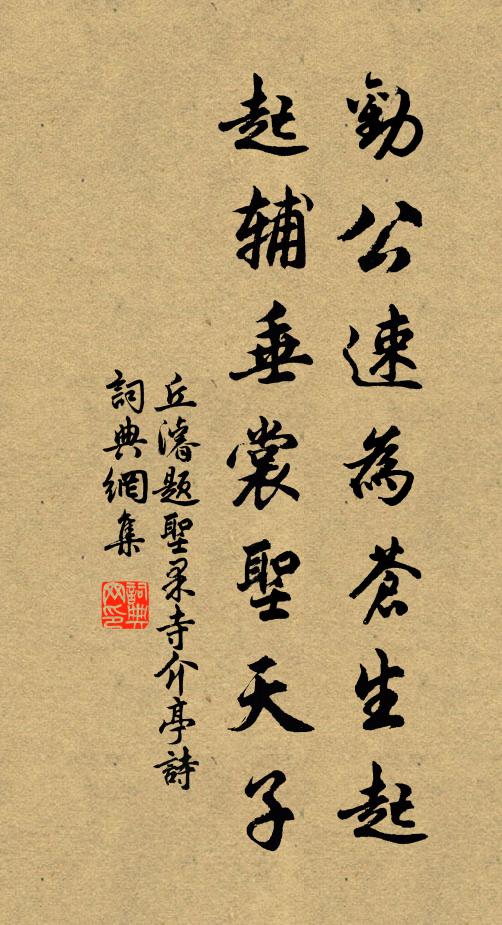 勸公速為蒼生起
起輔垂裳聖天子
丘濬題聖果寺介亭詩
詞典網集
詞典网印